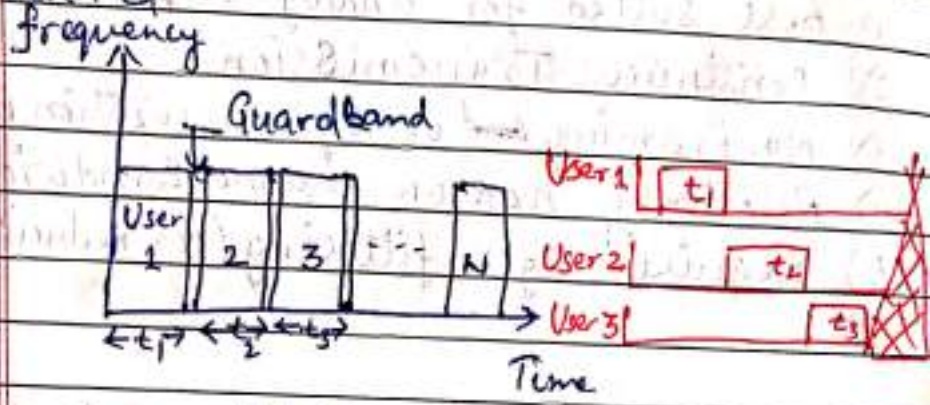 frequency
Guardband
User 1
2
3
....
N
t1
t2
t3
Time
User 1
t1
User 2
t2
User 3
t3